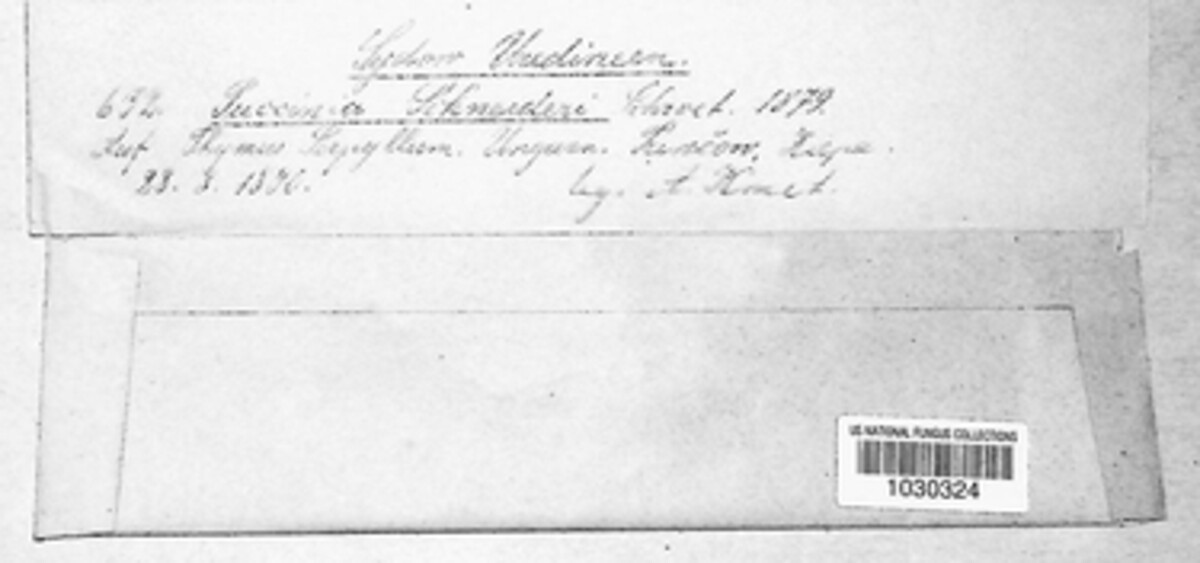 Sydow Uredineen.
692. Puccinia Schneideri Schroet. 1879.
Auf Thymus Serpyllum. Ungarn.
23. 8. 1890. leg. A. Kmet.
US NATIONAL FUNGUS COLLECTIONS
1030324